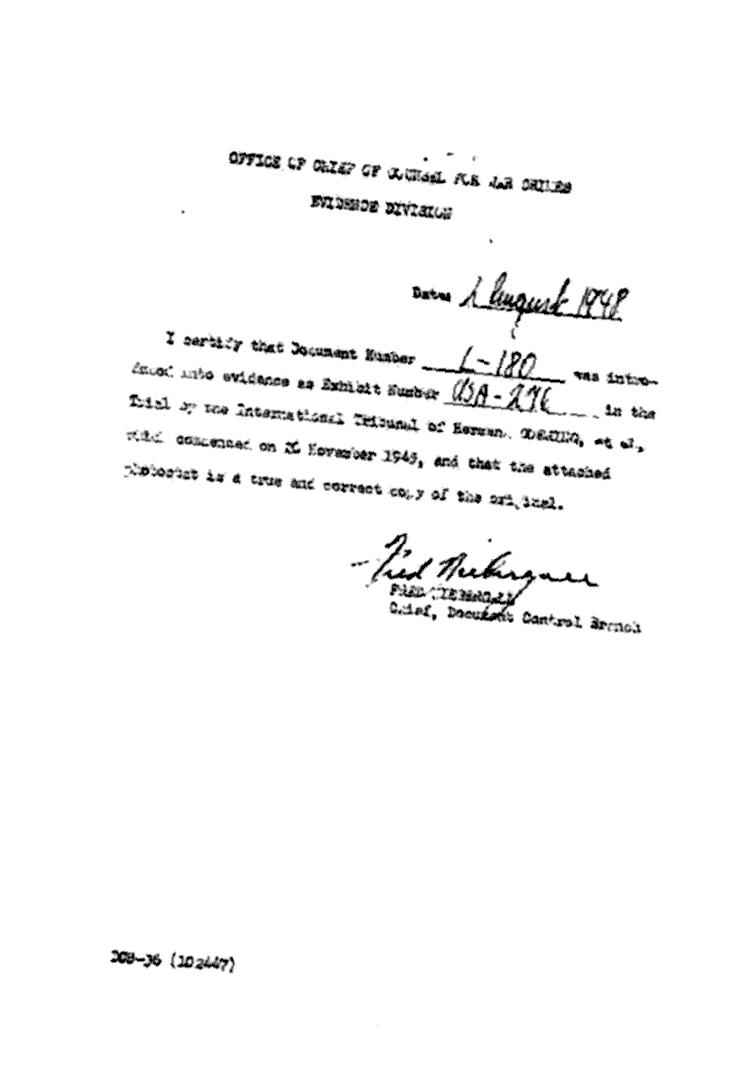 OFFICE OF CHIEF OF COUNSEL FOR WAR CRIMES
EVIDENCE DIVISION
Date: August 1948
I certify that Document Number L-180 was intro-
duced into evidence as Exhibit Number USA-276 in the
Trial by the International Tribunal of Herman GOERING, et al.,
commenced on 20 November 1945, and that the attached
photostat is a true and correct copy of the original.
Fred Niebergall
FRED NIEBERGALL
Chief, Document Control Branch
DCB-36 (102447)